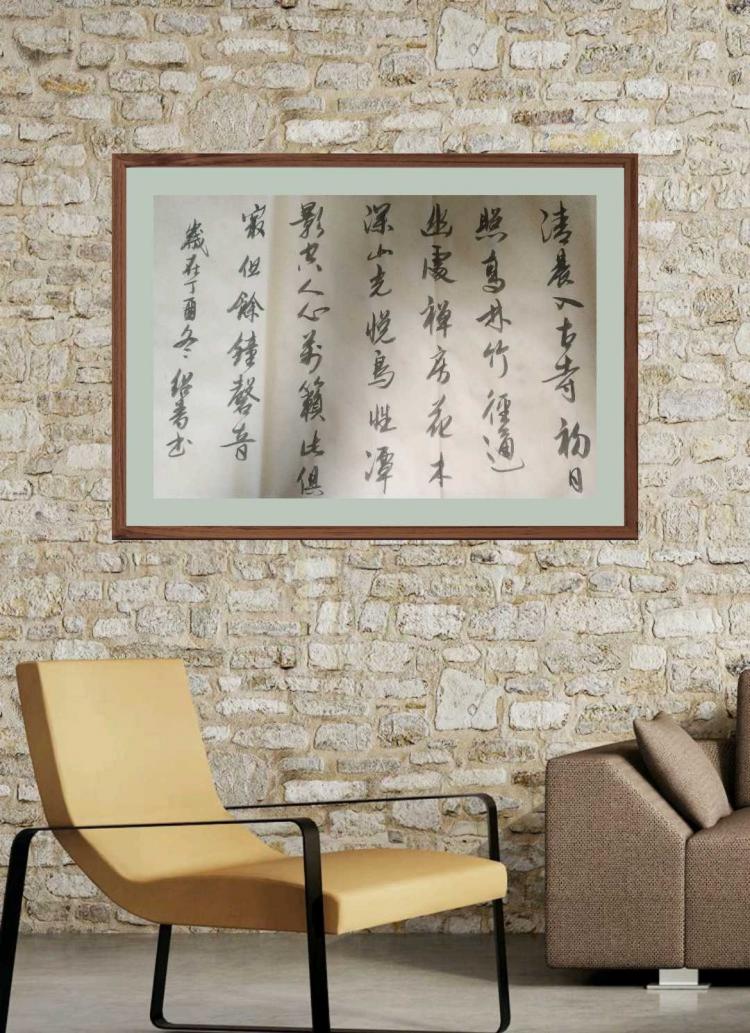 清晨入古寺初日
照高林竹徑通
幽處禪房花木
深山光悅鳥性潭
影空人心萬籟此俱
寂但餘鐘磬音
歲在丁酉冬紹书